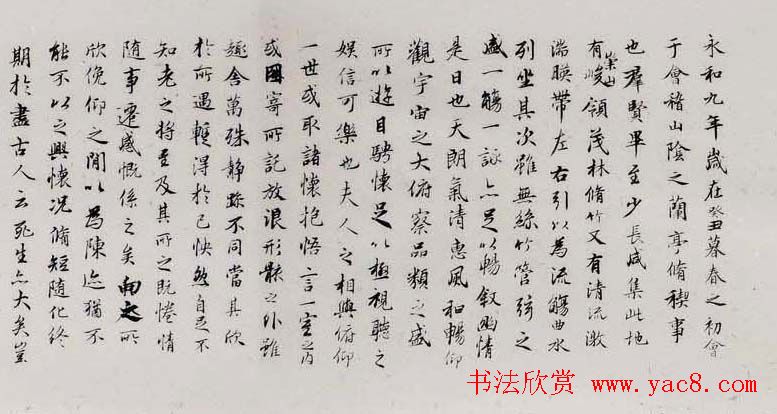 永和九年歲在癸丑暮春之初會
于會稽山陰之蘭亭脩稧事
也羣賢畢至少長咸集此地
有崇山峻領茂林脩竹又有清流激
湍暎帶左右引以為流觴曲水
列坐其次雖無絲竹管弦之
盛一觴一詠亦足以暢敘幽情
是日也天朗氣清惠風和暢仰
觀宇宙之大俯察品類之盛
所以遊目騁懷足以極視聽之
娛信可樂也夫人之相與俯仰
一世或取諸懷抱悟言一室之內
或因寄所託放浪形骸之外雖
趣舍萬殊靜躁不同當其欣
於所遇蹔得於己怏然自足不
知老之將至及其所之既惓情
隨事遷感慨係之矣向之所
欣俛仰之閒以為陳迹猶不
能不以之興懷況脩短隨化終
期於盡古人云死生亦大矣豈
书法欣赏 www.yac8.com